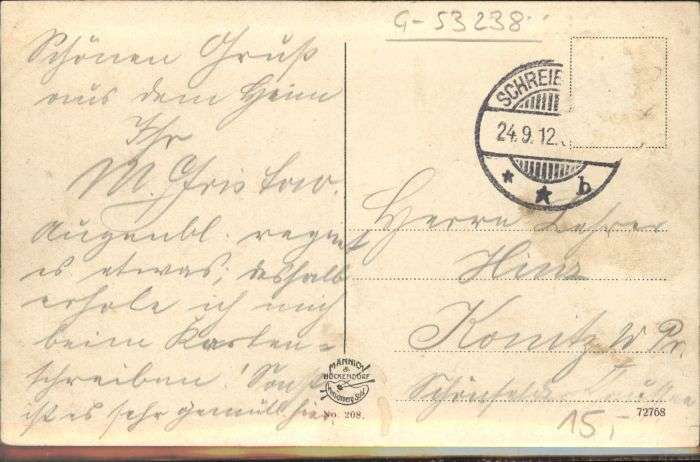 G-53238
Schönen Gruß
aus dem Heim
Ihr
M. Gristow.
Augenbl. regnet
es etwas; deshalb
erhole ich mich
beim Karten-
schreiben! Sonst
ist es sehr gemütl. hier.
SCHREIB
24.9.12.
* * b
Herrn Lehrer
Hinz
Konitz W Pr.
MÄNNICH
&
HÖCKENDORF
No. 208.
72768
15,-